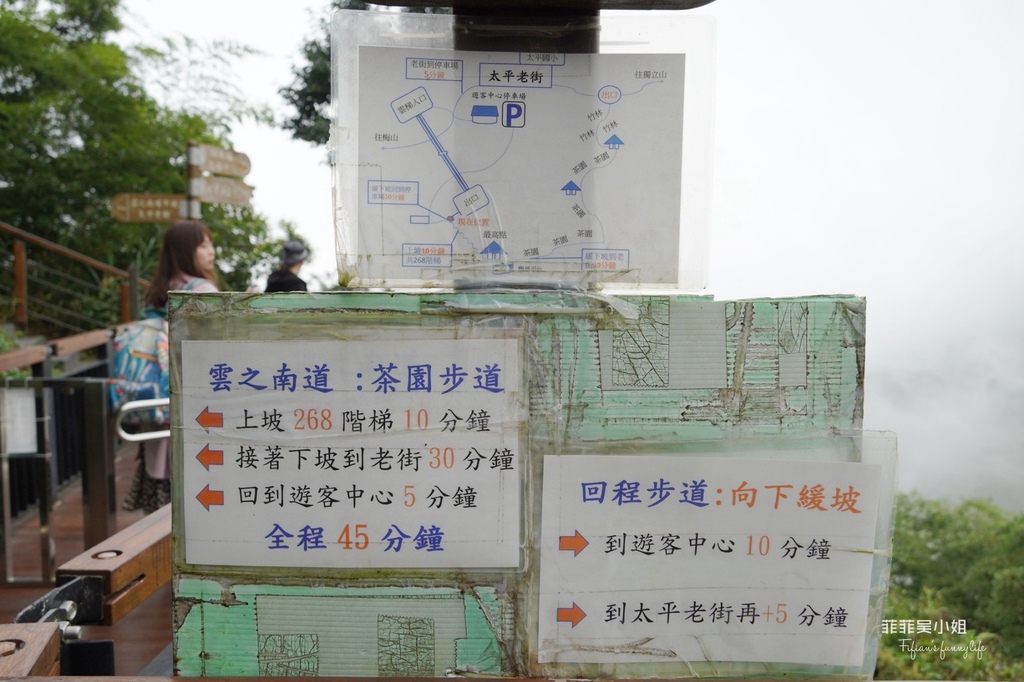 太平國小
老街到停車場
5分鐘
太平老街
往獨立山
雲梯入口
遊客中心停車場
P
出口
竹林
竹林
竹林
往梅山
茶園
茶園
出口
現在位置
茶園
最高點
上坡10分鐘
共268階梯
茶園
茶園
茶園
雲之南道 :茶園步道
上坡 268 階梯 10 分鐘
接著下坡到老街 30 分鐘
回到遊客中心 5 分鐘
全程 45 分鐘
回程步道:向下緩坡
到遊客中心 10 分鐘
到太平老街再+5 分鐘
菲菲吴小姐
Fifian's funnylife